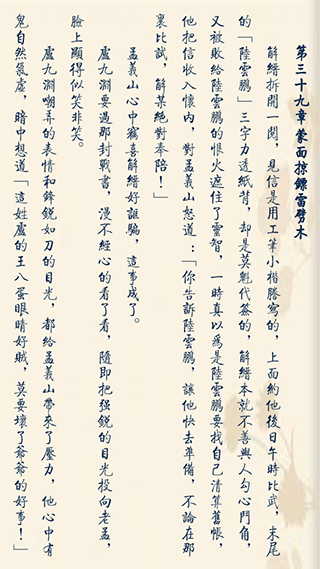 第三十九章蒙面掠鏢雷劈木
解縉拆開一閱，見信是用工筆小楷謄寫的，上面約他後日午時比武，末尾
的「陸雲鵬」三字力透紙背，卻是莫魁代簽的，解縉本就不善與人勾心鬥角，
又被敗給陸雲鵬的恨火遮住了靈智，一時真以為是陸雲鵬要找自己清算舊帳，
他把信收入懷內，對孟義山怒道：「你告訴陸雲鵬，讓他快去準備，不論在那
裏比試，解某絕對奉陪！」
孟義山心中竊喜解縉好誆騙，這事成了。
盧九淵要過那封戰書，漫不經心的看了看，隨即把強銳的目光投向老孟，
臉上顯得似笑非笑。
盧九淵嘲弄的表情和鋒銳如刀的目光，都給孟義山帶來了壓力，他心中有
鬼自然氣虛，暗中想道「這姓盧的王八蛋眼睛好賊，莫要壞了爺爺的好事！」